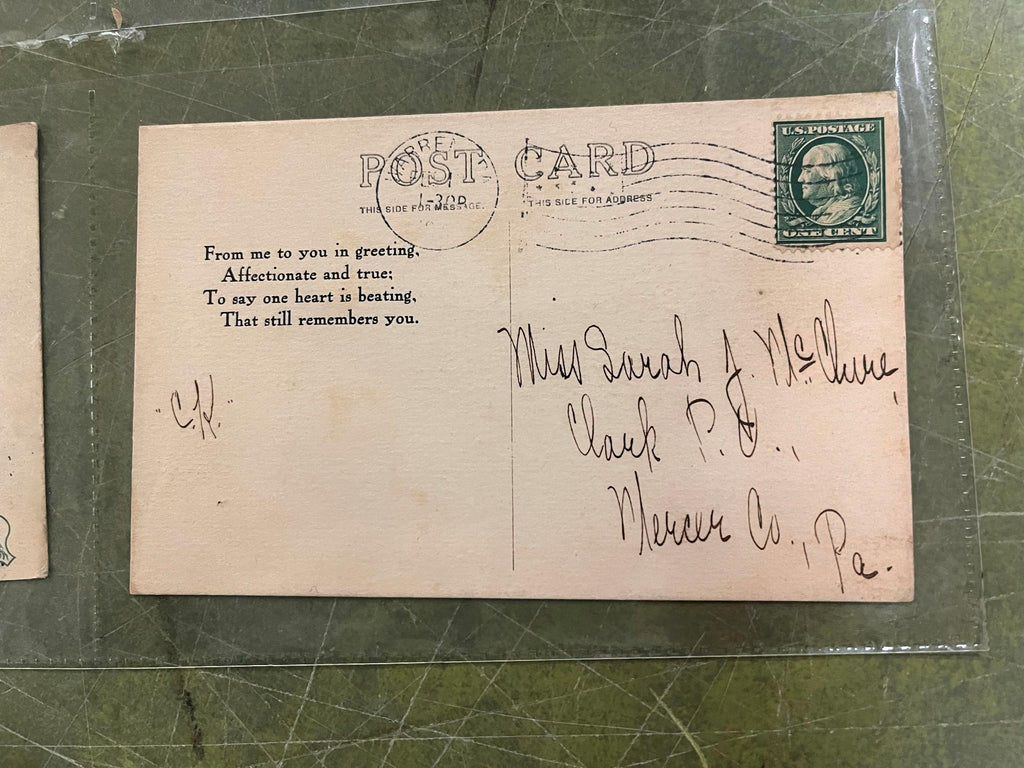 POST CARD
THIS SIDE FOR MESSAGE.
THIS SIDE FOR ADDRESS
1-30P
U.S. POSTAGE
ONE CENT
From me to you in greeting,
Affectionate and true;
To say one heart is beating,
That still remembers you.
"C.K."
Miss Sarah J. McClure,
Clark P. O.,
Mercer Co., Pa.